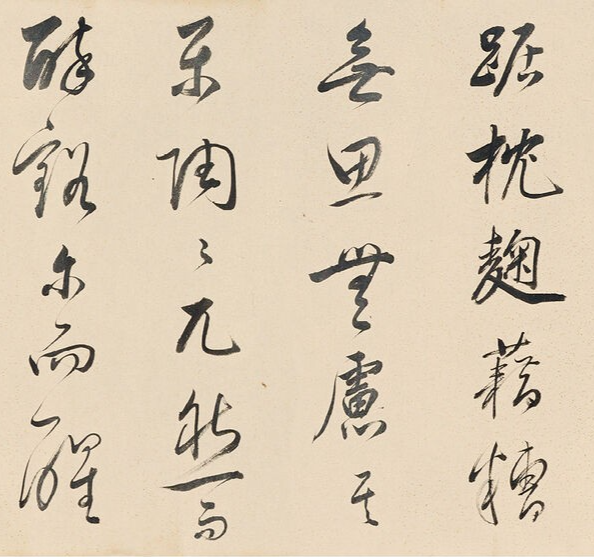 踞枕麹藉糟
無思無慮其
樂陶々兀然而
醉豁尓而醒